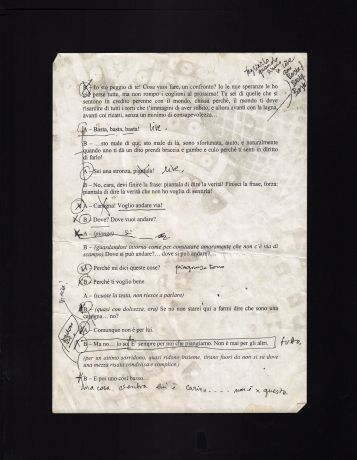 - Io sto peggio di te! Cose vuoi fare, un confronto? Io le mie speranze le ho
perse tutte, ma non rompo i coglioni al prossimo! Tu sei di quelle che si
sentono in credito perenne con il mondo, chissà perché, il mondo ti deve
risarcire di tutti i torni che t'immagini di aver subito, e allora avanti con la lagna,
avanti coi ricatti, senza un minimo di consapevolezza...
A – Basta, basta, basta! live
B – ...sto male di qui; sto male di là, sono sfortunata, aiuto, e naturalmente
quando uno ti dà un dito prendi braccia e gambe e culo perché ti senti in diritto
di farlo!
A – Sei una stronza, piantala! live
B – No, cara, devi finire la frase: piantala di dire la verità! Finisci la frase, forza:
piantala di dire la verità che non ho voglia di sentirla!
A – Carogna! Voglio andare via!
B – Dove? Dove vuoi andare?
A – (piange)
B – (guardandosi intorno come per constatare amaramente che non c'è via di
scampo) Dove si può andare?... dove si può andare?...
A – Perché mi dici queste cose? piangnucolano
B – Perché ti voglio bene
A – (scuote la testa, non riesce a parlare)
B – (quasi con dolcezza, ora) Se no non starei qui a farmi dire che sono una
carogna... no?
A – Comunque non è per lui.
B – Ma no... lo so. È sempre per noi che piangiamo. Non è mai per gli altri. tutto
(per un attimo sorridono, quasi ridono insieme, tirano fuori da non si sa dove
una mezza risata condivisa e complice.)
B – E poi uno così basso...
una cosa carino..... non è x questo